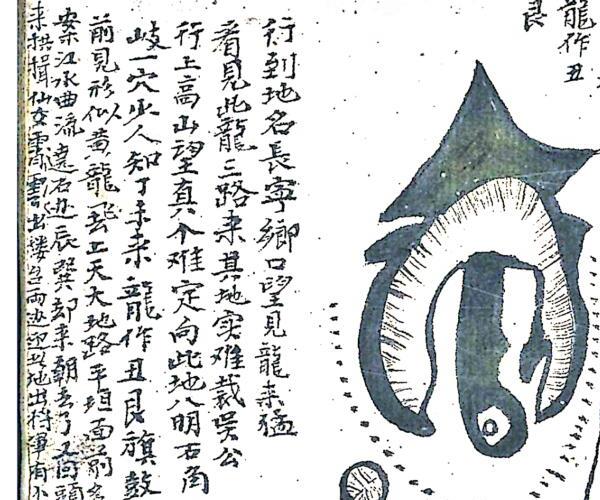 龍作丑
艮
行到地名長寧鄉口望見龍來猛
看見此龍三路來其地实难裁吳公
行上高山望真穴难定向此地八明右角
岐一穴少人知丁未來龍作丑艮旗鼓
前見形似黃龍飛上天大地路平坦面前名
案江水曲流遠右边辰巽却來朝去了又回頭
来拱揖仙女雲霄出楼台两边迎丑地出将軍有小